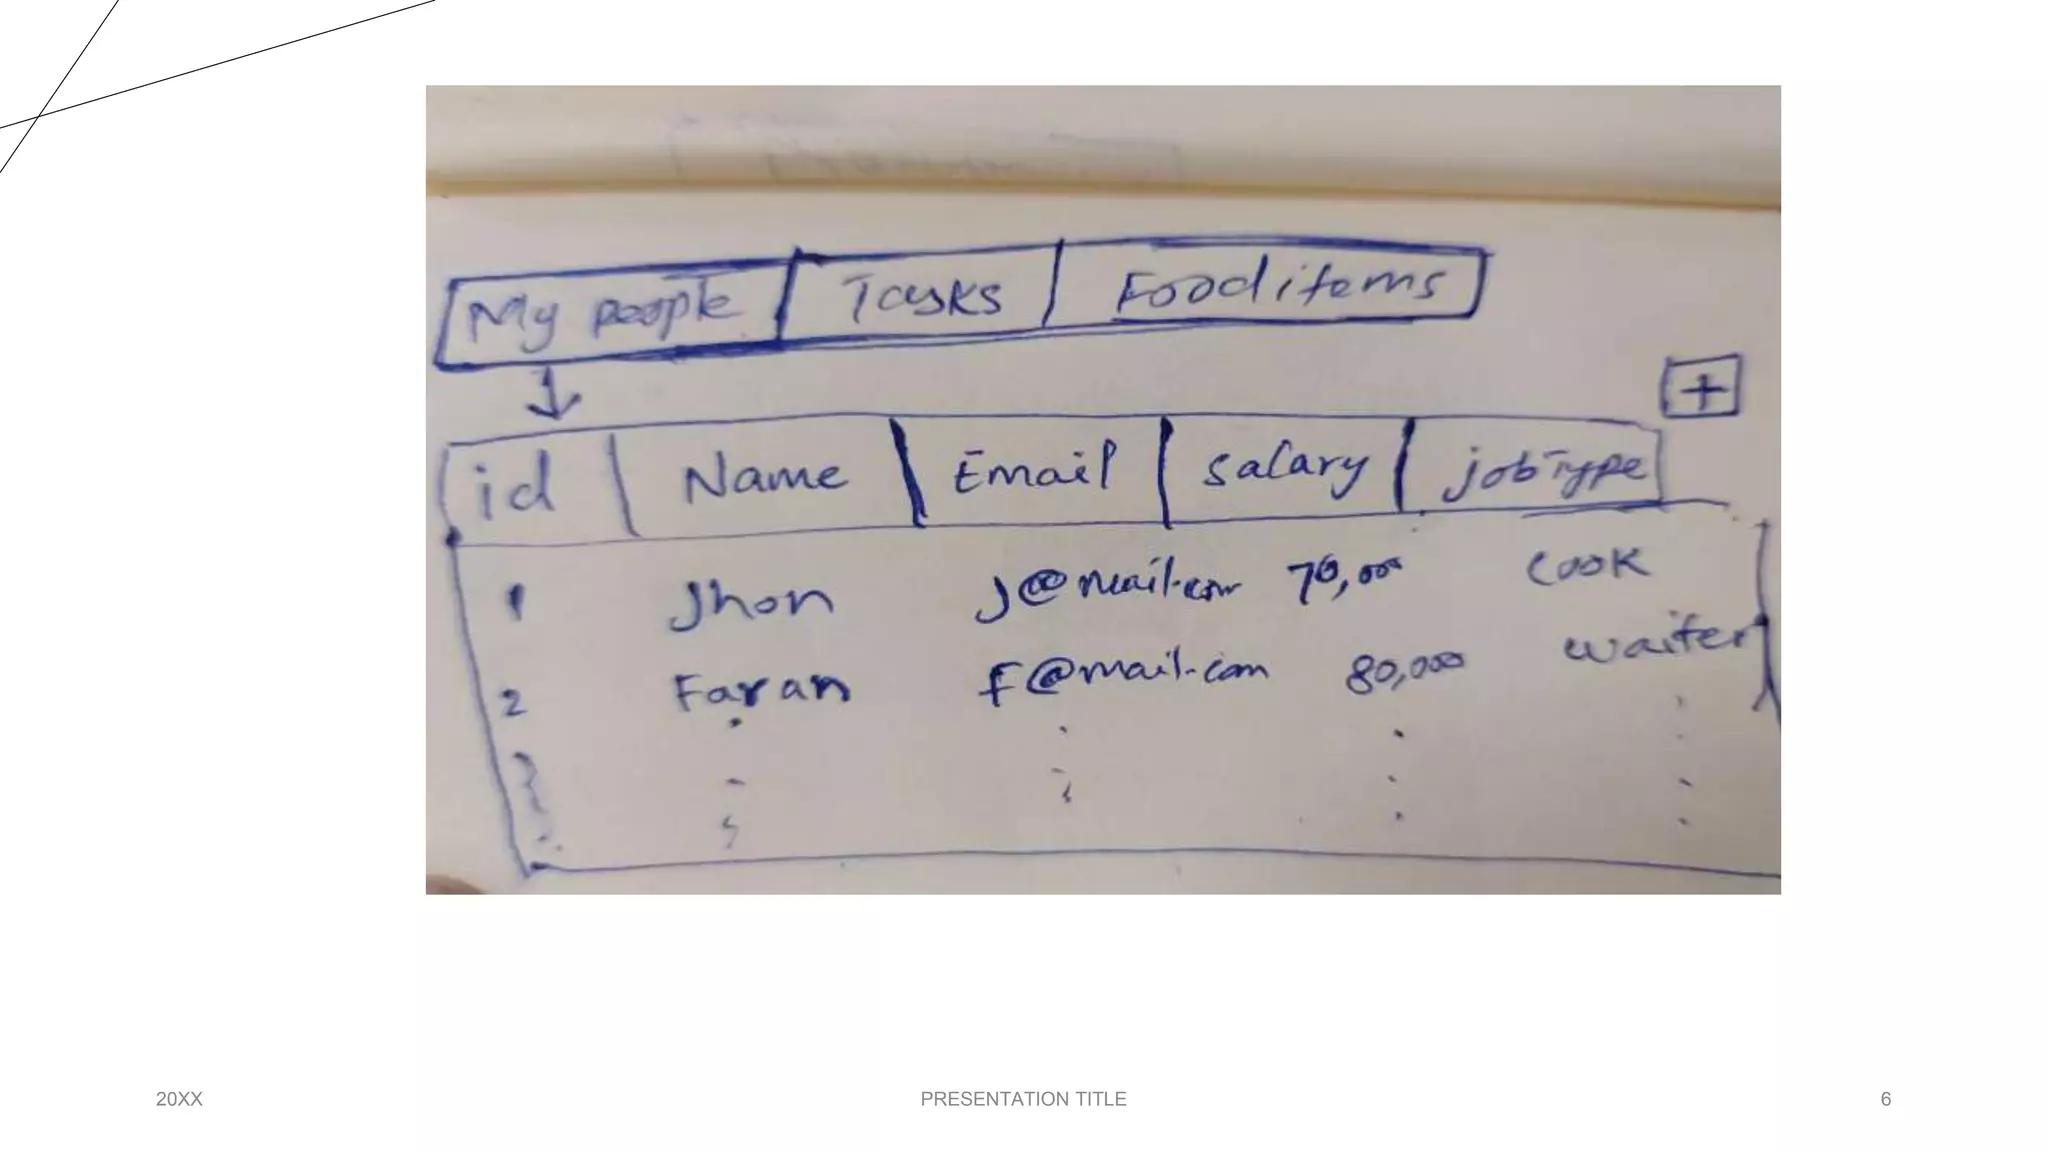 My people Tasks Food items
+
id Name Email salary jobType
1 Jhon j@mail.com 70,000 cook
2 Faran f@mail.com 80,000 waiter
20XX PRESENTATION TITLE 6